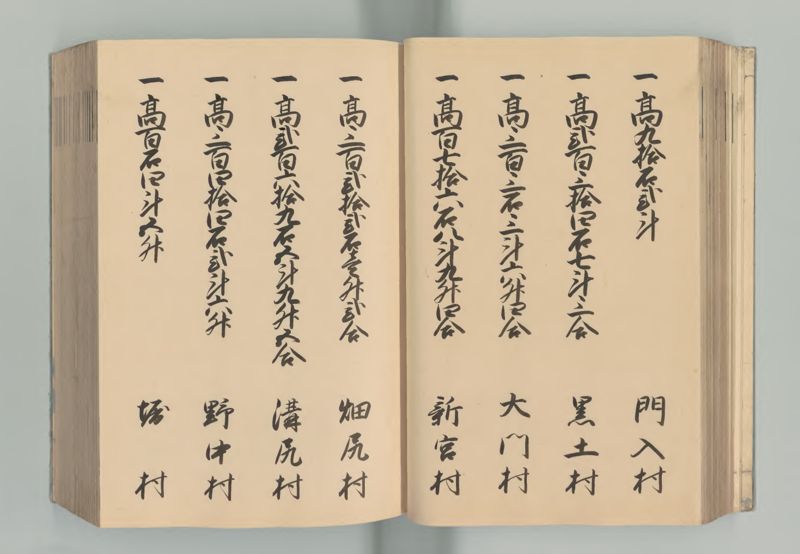 一高九拾石弐斗 門入村
一高弐百三拾四石七斗三合 黒土村
一高三百三石三斗六升四合 大門村
一高百七拾六石八斗九升四合 新宮村
一高三百弐拾弐石壱升弐合 畑尻村
一高弐百六拾九石五斗九升五合 溝尻村
一高三百四拾四石弐斗六升 野中村
一高百石四斗五升 堀村